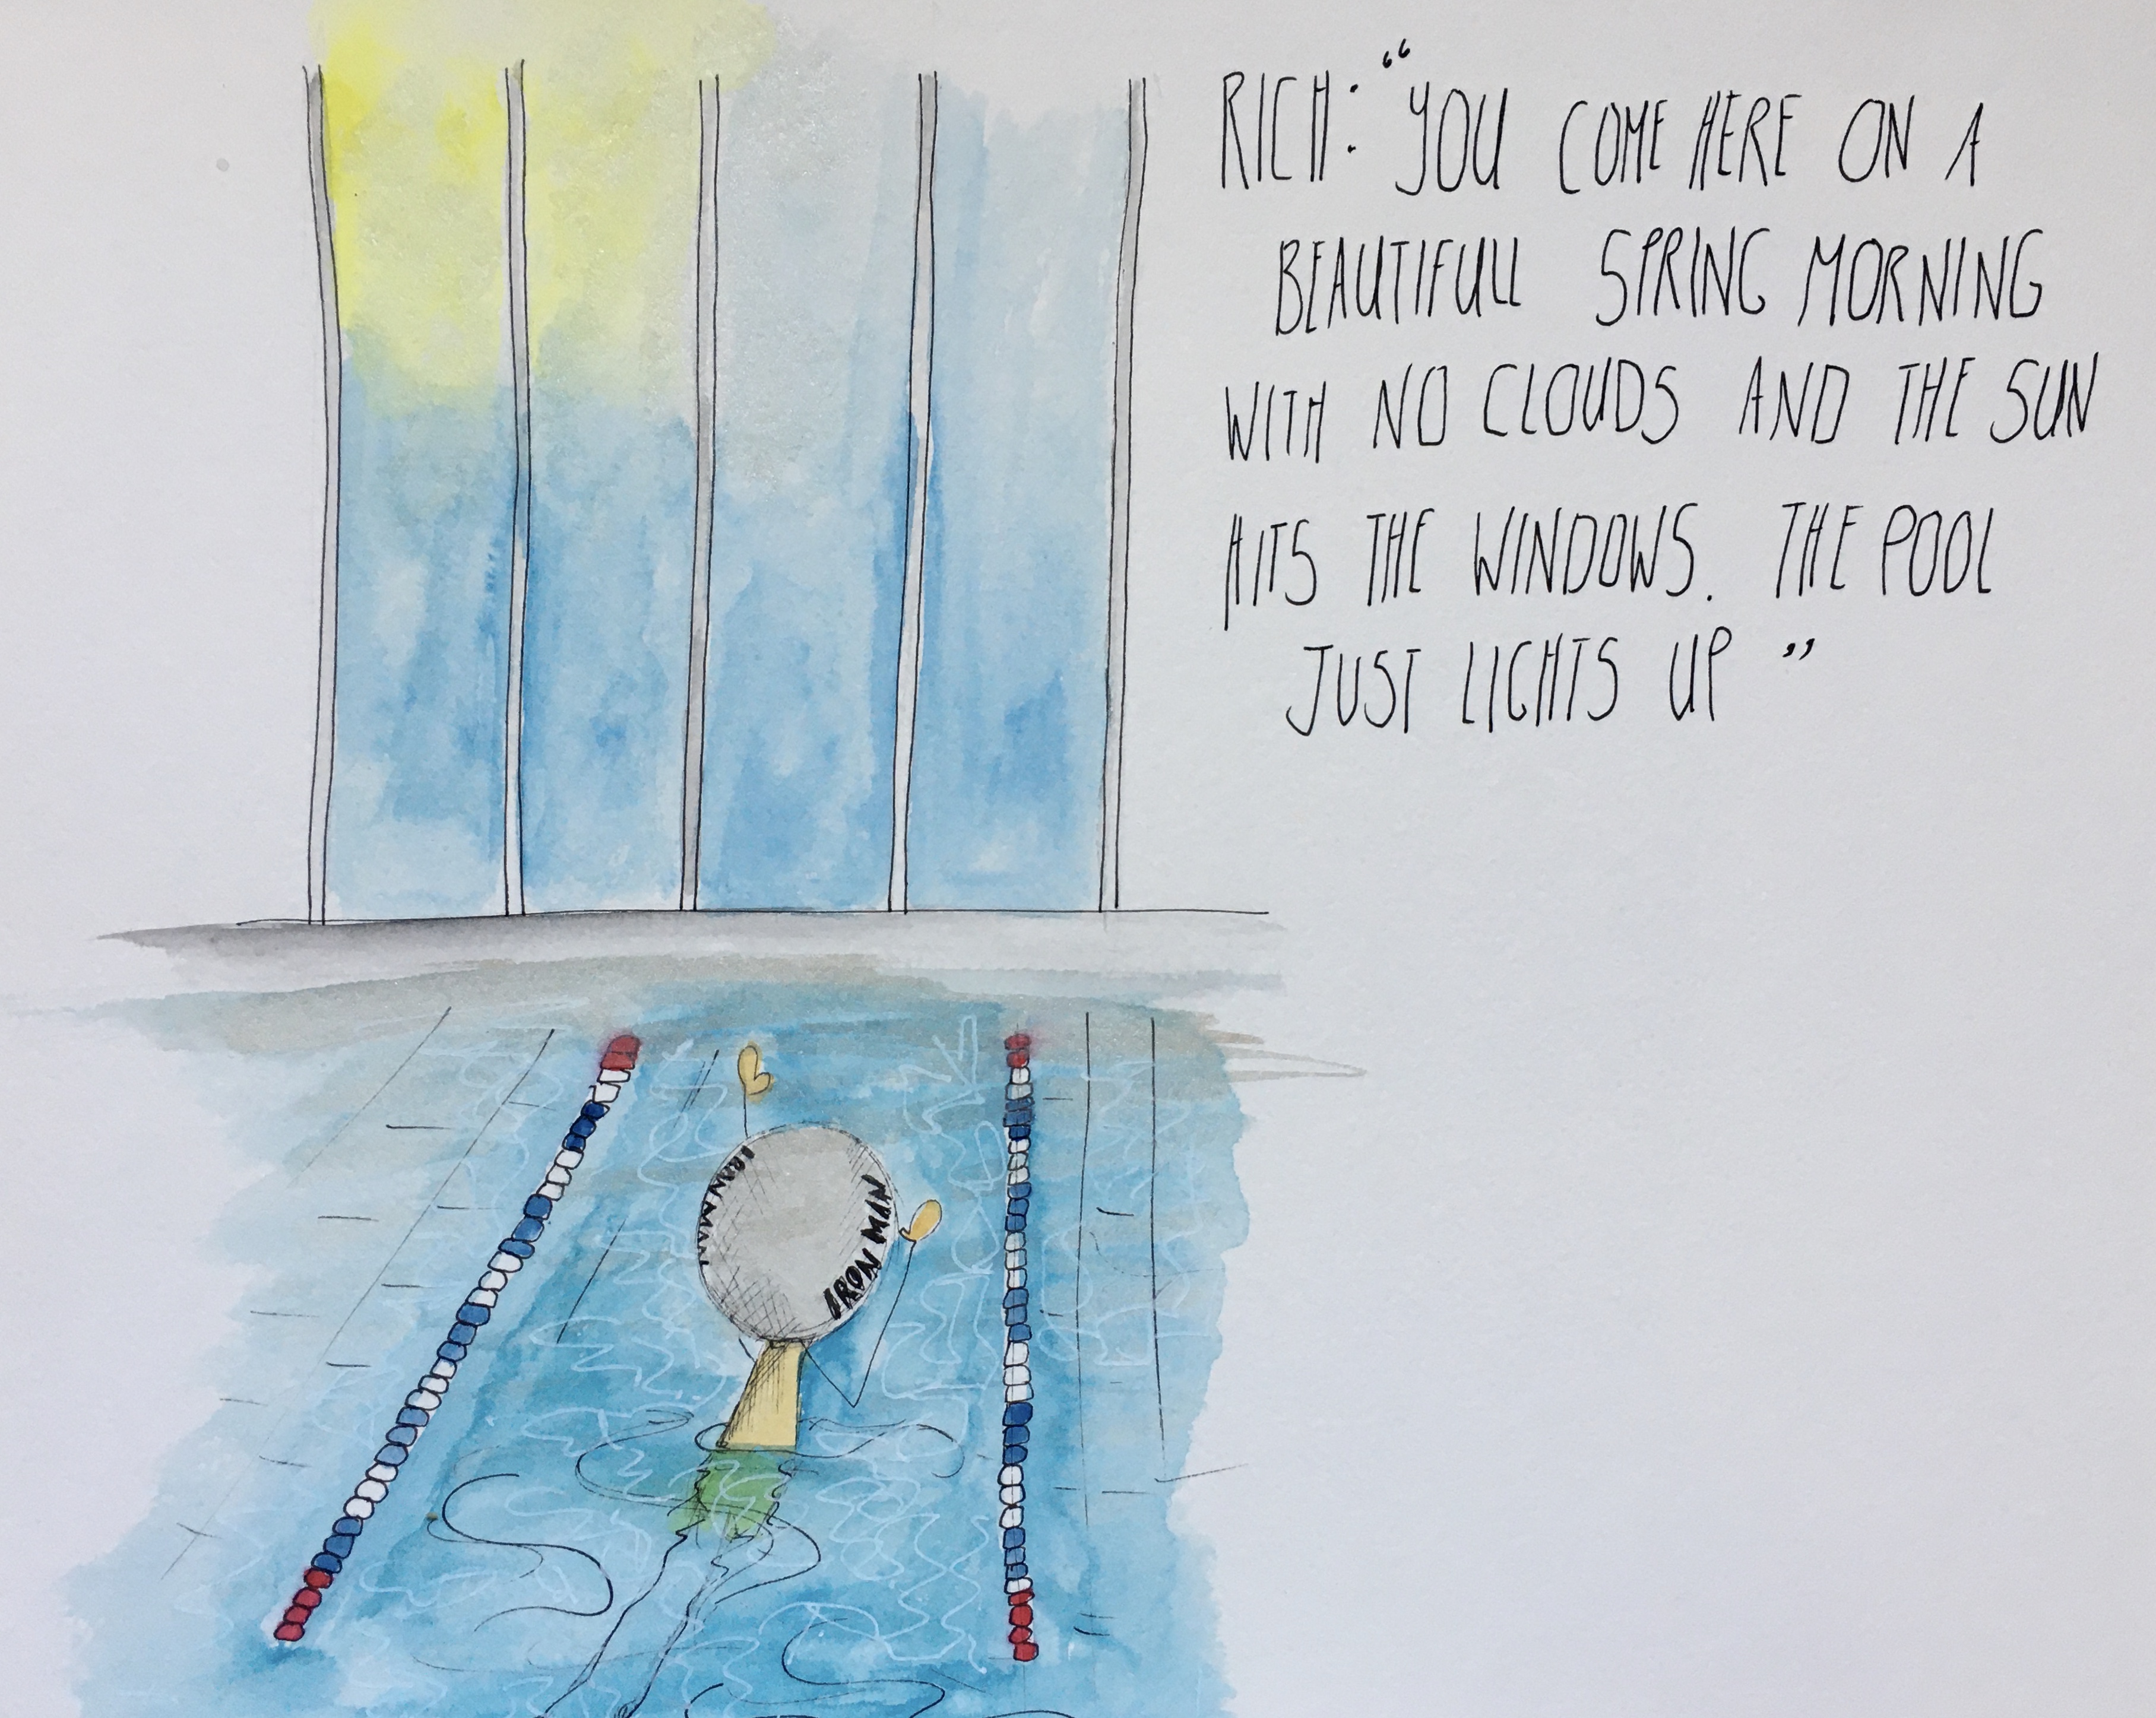 RICH: "YOU COME HERE ON A
BEAUTIFULL SPRING MORNING
WITH NO CLOUDS AND THE SUN
HITS THE WINDOWS. THE POOL
JUST LIGHTS UP"
IRON MAN
IRON MAN